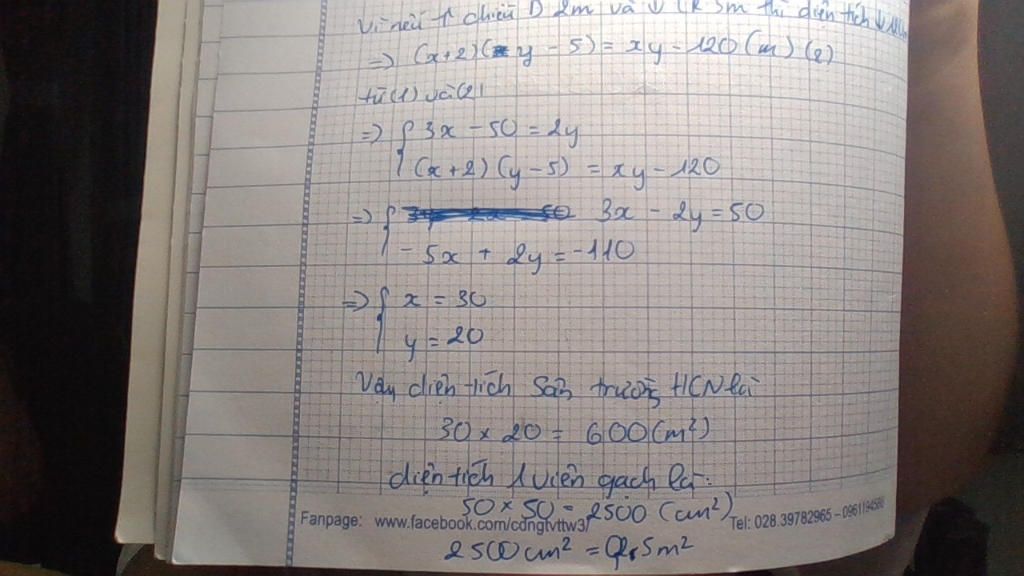 Vì nếu ↑ chiều D 2m và ↓ CR 5m thì diện tích ↓
=> (x+2)(y - 5) = xy - 120 (m) (2)
từ (1) và (2)
=> { 3x - 50 = 2y
(x+2) (y - 5) = xy - 120
=> { 3x - 2y = 50
- 5x + 2y = -110
=> { x = 30
y = 20
Vậy diện tích sân trường HCN là
30 x 20 = 600 (m²)
diện tích 1 viên gạch là:
50 x 50 = 2500 (cm²)
Fanpage: www.facebook.com/cdngtvttw3/ Tel: 028.39782965 - 0961194580
2500 cm² = 0,25 m²